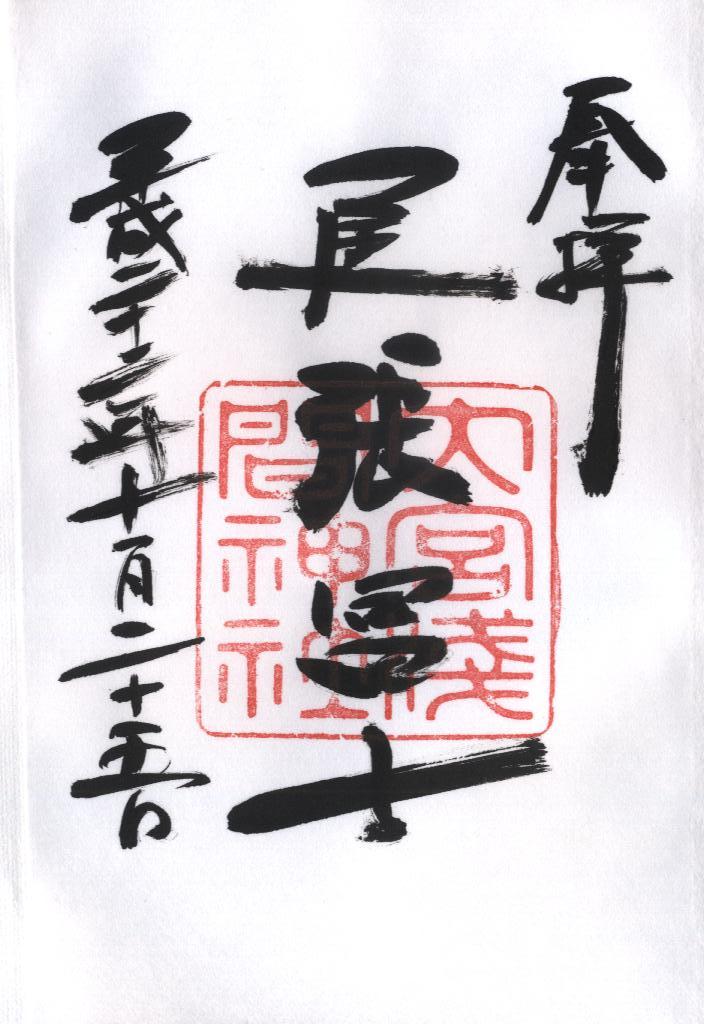 奉拝
尾張冨士
大宮淺間神社
平成二十二年十月二十五日